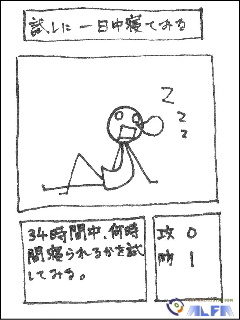 試しに一日中寝てみる
Z
Z
Z
34時間中、何時
間寝られるかを試
してみる。
攻 0
防 1
ALFA